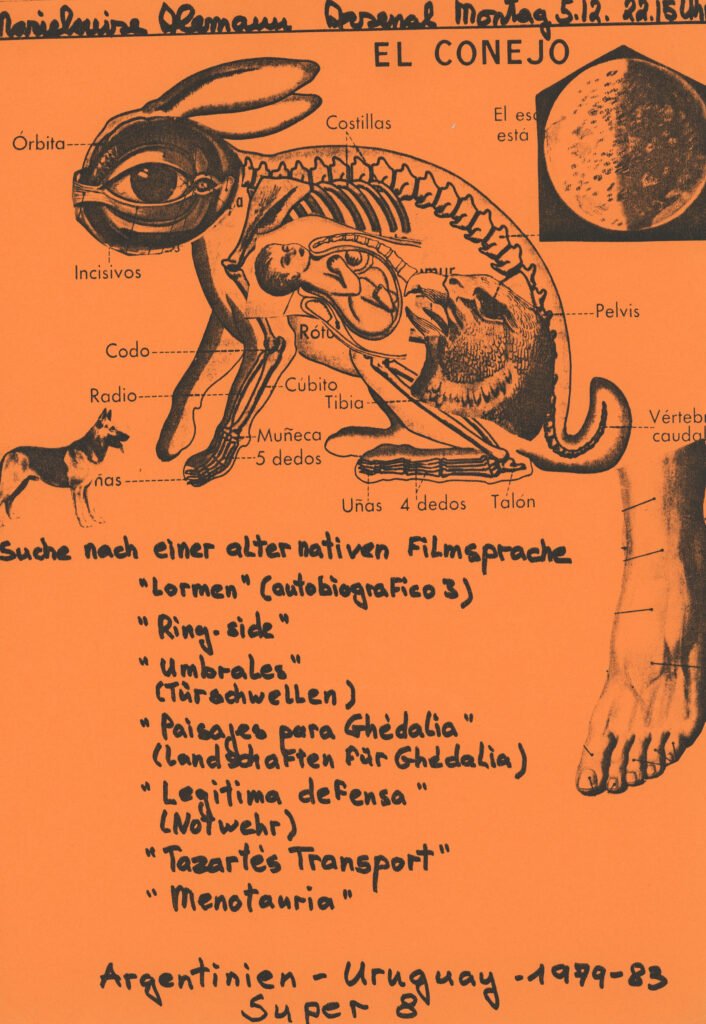 Marielouise Alemann Arsenal Montag 5.12. 22.15 Uhr
EL CONEJO
Órbita
Costillas
El
está
Incisivos
Pelvis
Rótu
Codo
Radio
Cúbito
Tibia
Muñeca
5 dedos
ñas
Vérteb
caudal
Uñas 4 dedos Talón
Suche nach einer alternativen Filmsprache
"Lormen" (autobiografico 3)
"Ring-side"
"Umbrales"
(Türschwellen)
"Paisajes para Ghédalia"
(Landschaften für Ghédalia)
"Legitima defensa"
(Notwehr)
"Tazartés Transport"
"Menotauria"
Argentinien - Uruguay - 1979-83
Super 8